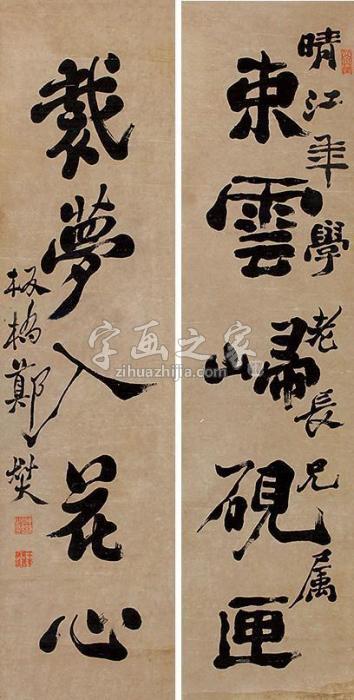 晴江年學老長兄属
束雲歸硯匣
裁夢入花心
板橋鄭燮
字画之家
zihuazhijia.com